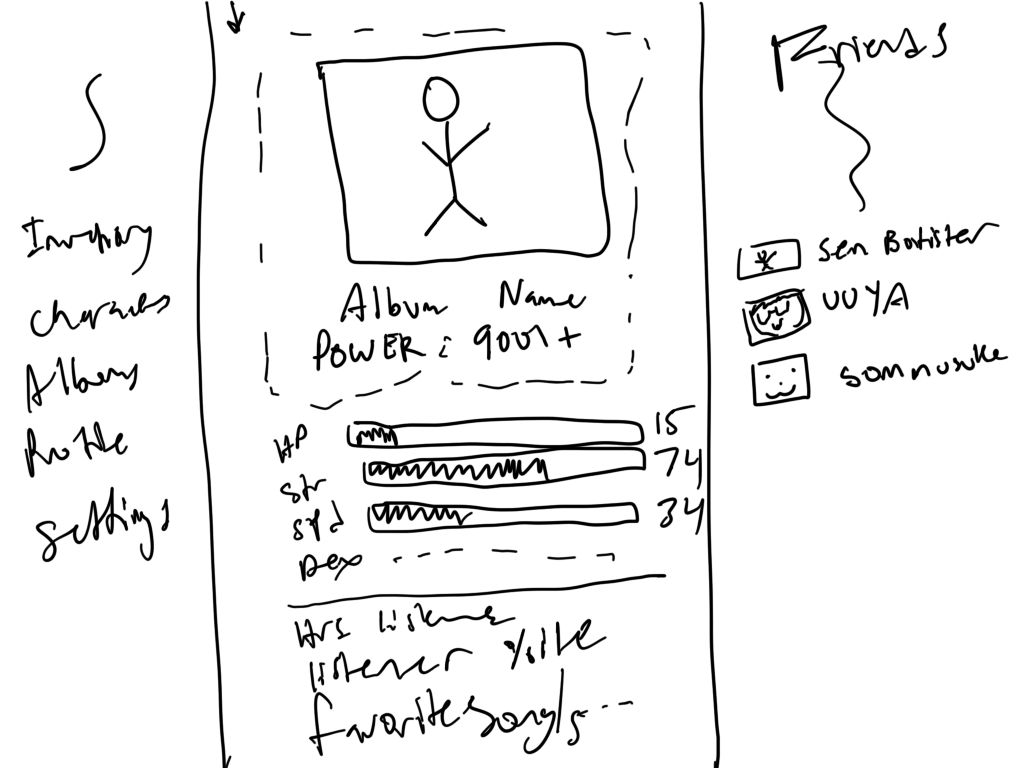 Inventory
Characters
Albums
Profile
Settings
Album Name
POWER: 9001+
HP 15
Str 74
Spd 34
Dex
Hrs Listened
listener %ile
favorite song/s...
Friends
Sen Batister
UUYA
somnusuke